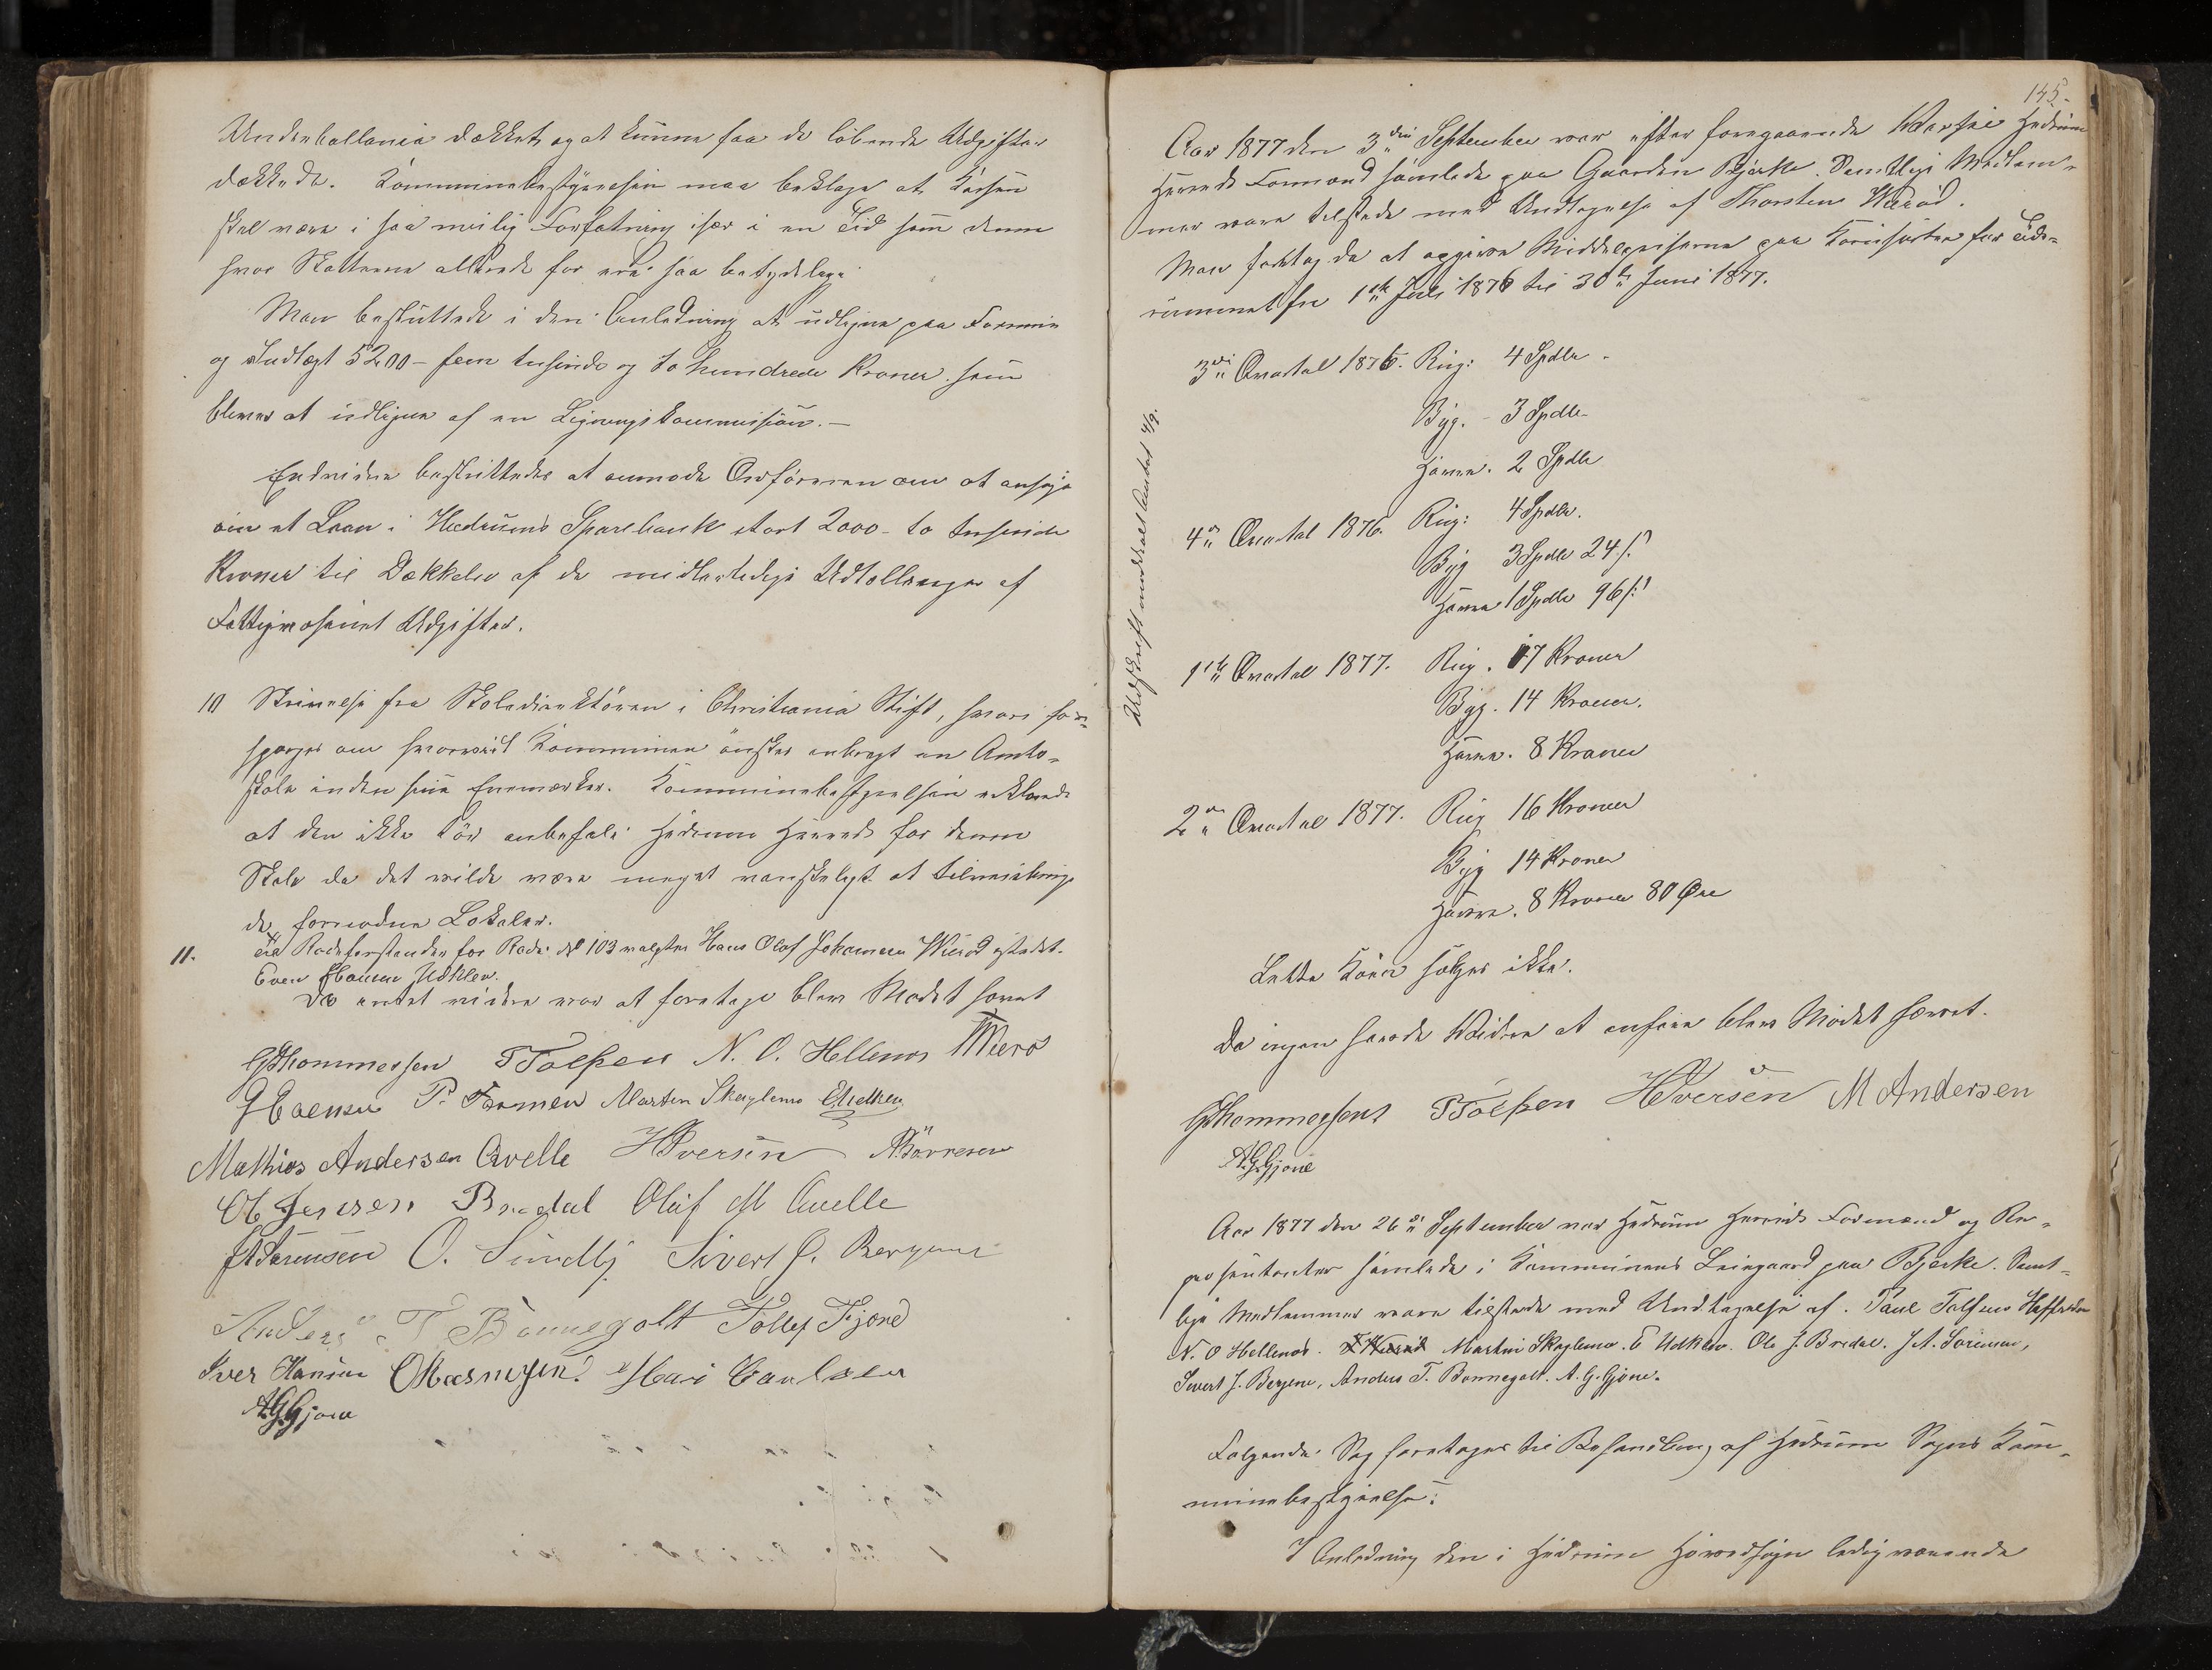 Underballance dækket og at kunne faa de løbende Udgifter
dækkede. Kommunebestyrelsen maa beklage at Kassen
skal være i saa mislig Forfatning især i en Tid som denne
hvor Skatterne allerede før ere saa betydelige
Man besluttede i den Anledning at udligne paa Formue
og Indtægt 5200 – fem tusinde og to hundrede Kroner som
bliver at udligne af en Ligningskommission. –
Endvidere besluttedes at anmode Ordføreren om at ansøge
om et Laan i Hedrums Sparebank stort 2000 – to tusinde
Kroner til Dækkelse af de midlertidige Udtællinger af
Fattigvæsenets Udgifter.
10 Skrivelse fra Skoledirektøren i Christiania Stift, hvori for-
spørges om hvorvidt Kommunen ønsker anbragt en Amts-
skole inden sine Enemærker. Kommunebestyrelsen erklærede
at den ikke tør anbefale Hedrum Herred for denne
Skole da det vilde være meget vanskeligt at tilveiebringe
de fornødne Lokaler.
11. Til Rodeforstander for Rode № 103 valgtes Hans Olaf Johannesen istedet.
Even Hansen Udklev.
Da intet videre var at foretage blev Mødet hævet
G Thommesen T Tolfsen N. O. Hellenes
G Evensen P. Martin Skaglemo
Mathias Andersen Qvelle H Iversen
Ole Jensen Bredal Oluf M Qvelle
J A Sørensen O. Sundby Sivert J. Bergene
Anders T Bonnegolt Tollef Fjøre
Iver Hansen O Rasmusen
A.G. Gjone
145.
Aar 1877 den 3die September var efter foregaaende Varsel Hedrum
Herreds Formænd samlede paa Gaarden Bjerke. Samtlige Medlem-
mer vare tilstede med Undtagelse af Thorsten
Man foretog da at opgive Middelpriserne paa Kornsorter for Tids-
rummet fra 1ste Juli 1876 til 30te Juni 1877.
3die Qvartal 1876. Rug: 4 Spdlr.
Byg. – 3 Spdlr
Havre. 2 Spdlr
4de Qvartal 1876. Rug: 4 Spdlr.
Byg 3 Spdlr 24 ß
Havre 1 Spdlr 96 ß
1ste Qvartal 1877. Rug. 17 Kroner
Byg. 14 Kroner.
Havre. 8 Kroner
2de Qvartal 1877. Rug 16 Kroner
Byg 14 Kroner
Havre. 8 Kroner 80 Øre
Udskrift meddelt Amtet 4/9.
Lette Korn sælges ikke.
Da ingen havde Videre at anføre blev Mødet hævet.
G Thommesen T Tolfsen H Iversen M Andersen
A.G. Gjone
Aar 1877 den 26de September var Hedrum Herreds Formænd og Re-
præsentanter samlede i Kommunens Leiegaard paa Bjerke. Samt-
lige Medlemmer vare tilstede med Undtagelse af. Paul Tolfsen
N. O Hellenes. Martin Skaglemo. E Udklev. Ole J. Bredal. J. A. Sørensen,
Sivert J. Bergene, Anders T. Bonnegolt. A. G. Gjone.
Følgende Sag foretoges til Behandling af Hedrum Sogns Kom-
munebestyrelse:
I Anledning den i Hedrum Hovedsogn ledigværende